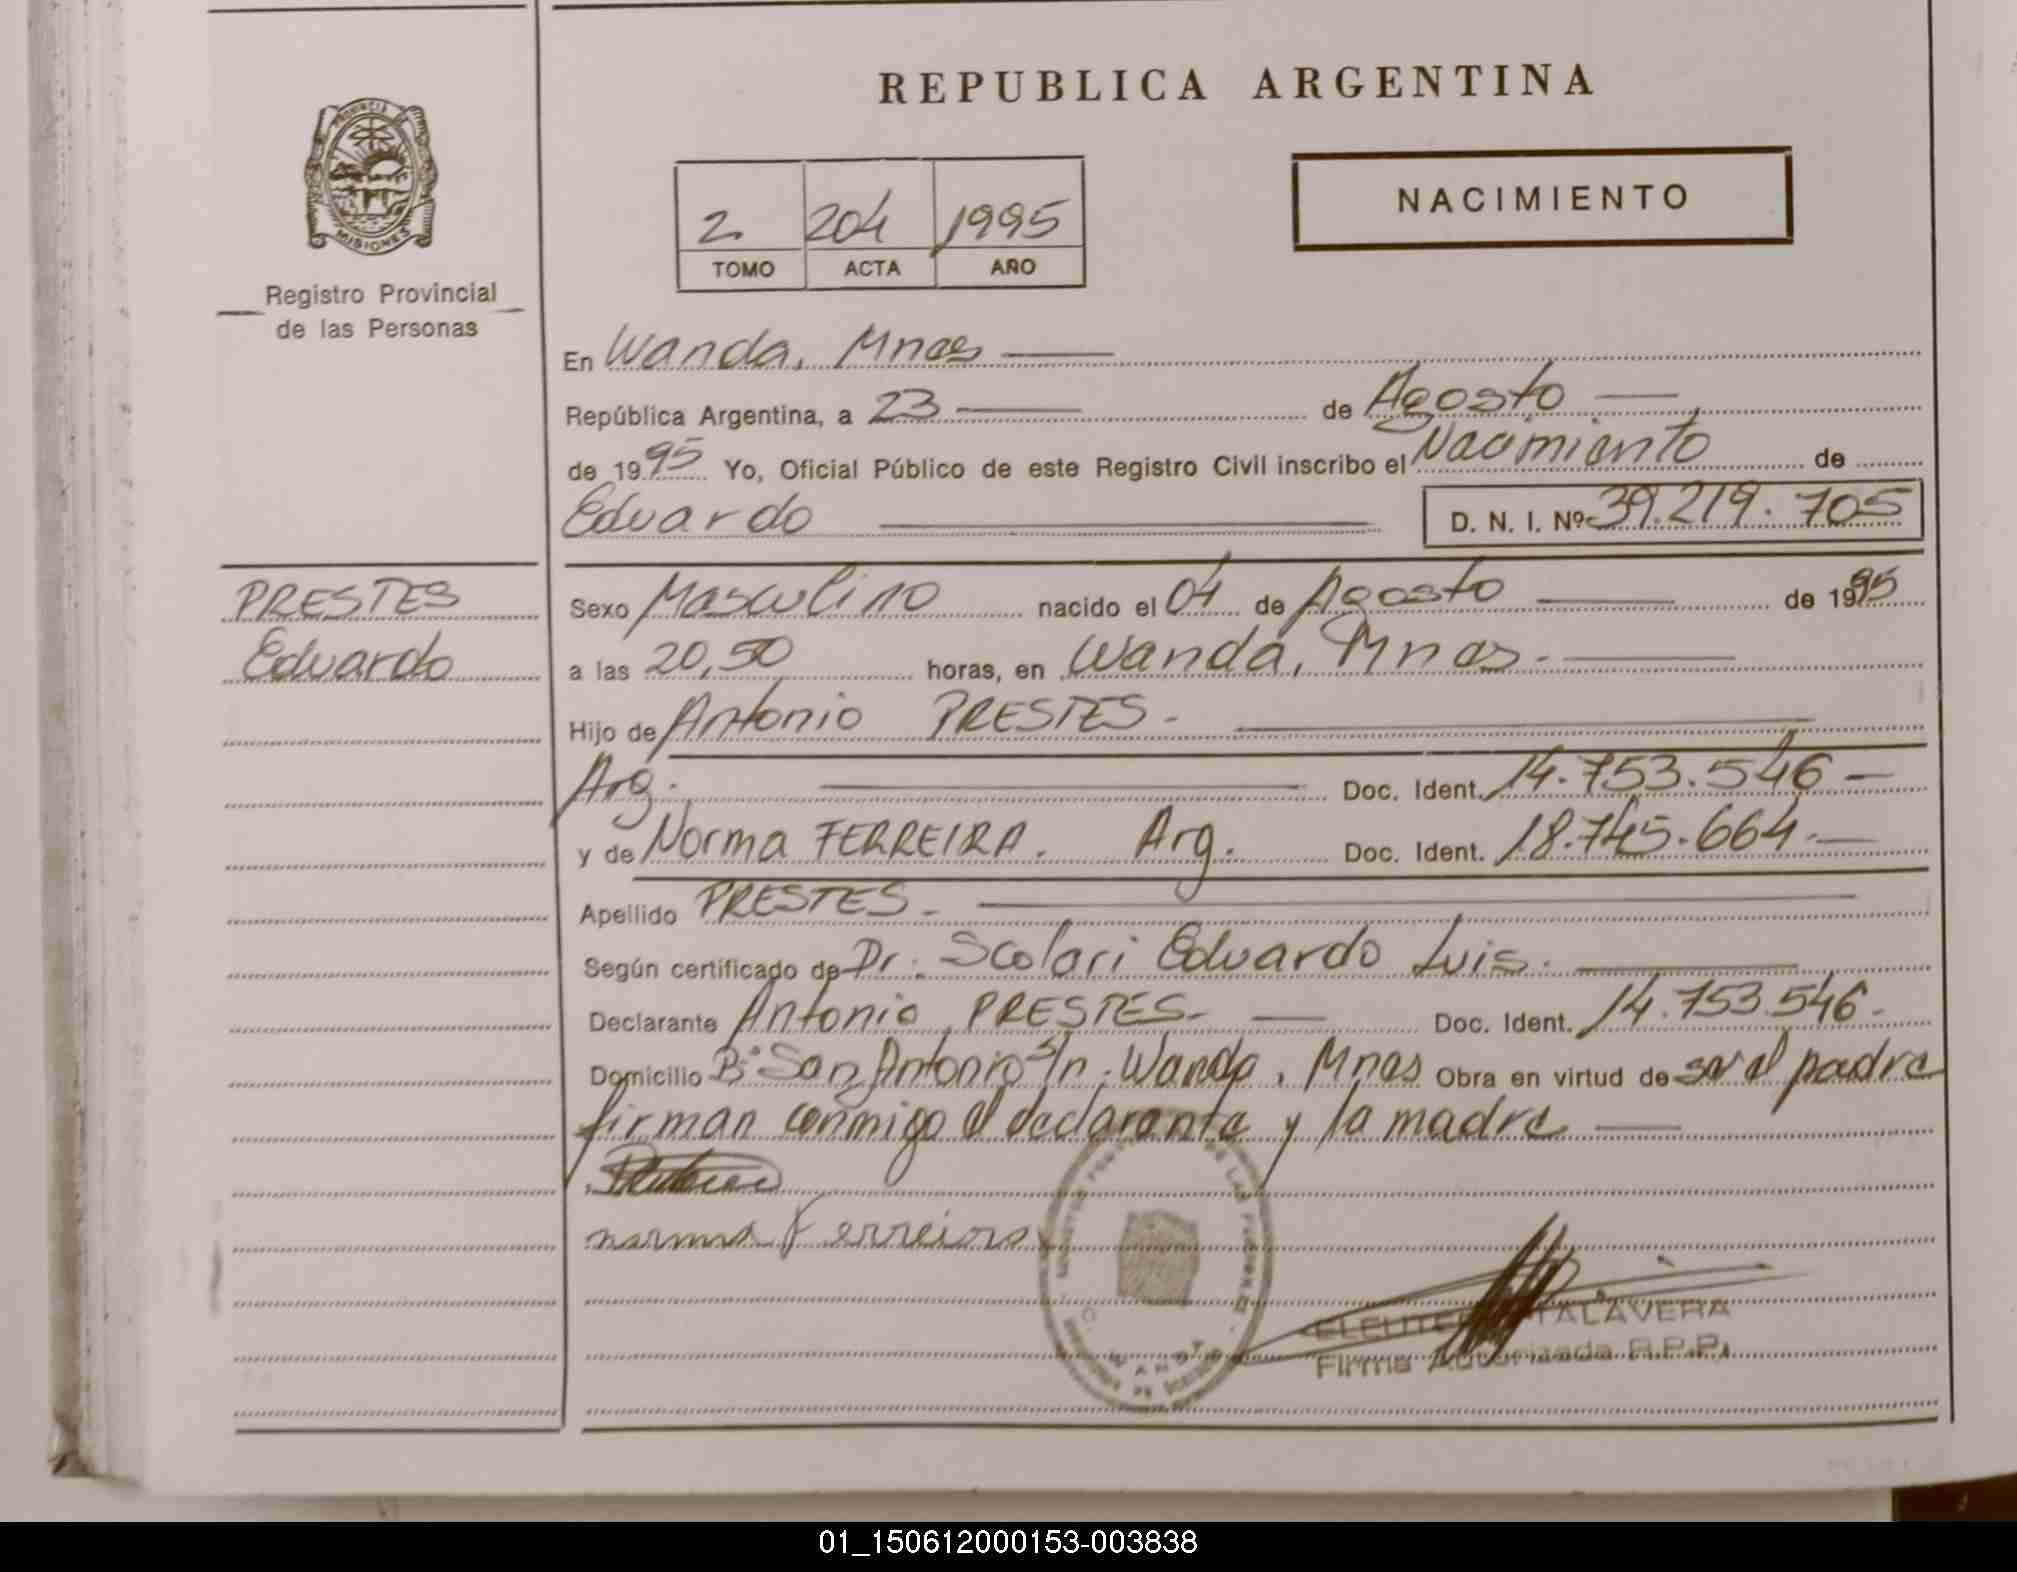 REPUBLICA ARGENTINA
PROVINCIA DE
MISIONES
Registro Provincial
de las Personas
NACIMIENTO
2 204 1995
TOMO ACTA AÑO
En Wanda, Mnes
República Argentina, a 23 de Agosto
de 1995 Yo, Oficial Público de este Registro Civil inscribo el Nacimiento de
Eduardo D. N. I. Nº 39.219.705
PRESTES
Eduardo
Sexo Masculino nacido el 04 de Agosto de 1995
a las 20,50 horas, en Wanda, Mnes.
Hijo de Antonio PRESTES.
Arg. Doc. Ident. 14.753.546
y de Norma FERREIRA. Arg. Doc. Ident. 18.745.664.
Apellido PRESTES.
Según certificado de Dr. Scolari Eduardo Luis.
Declarante Antonio PRESTES. Doc. Ident. 14.753.546.
Domicilio Bº San Antonio S/n. Wanda, Mnes Obra en virtud de ser el padre
firman conmigo el declarante y la madre
norma Ferreira
WANDA
TALAVERA
Firma Autorizada R.P.P.
01_150612000153-003838